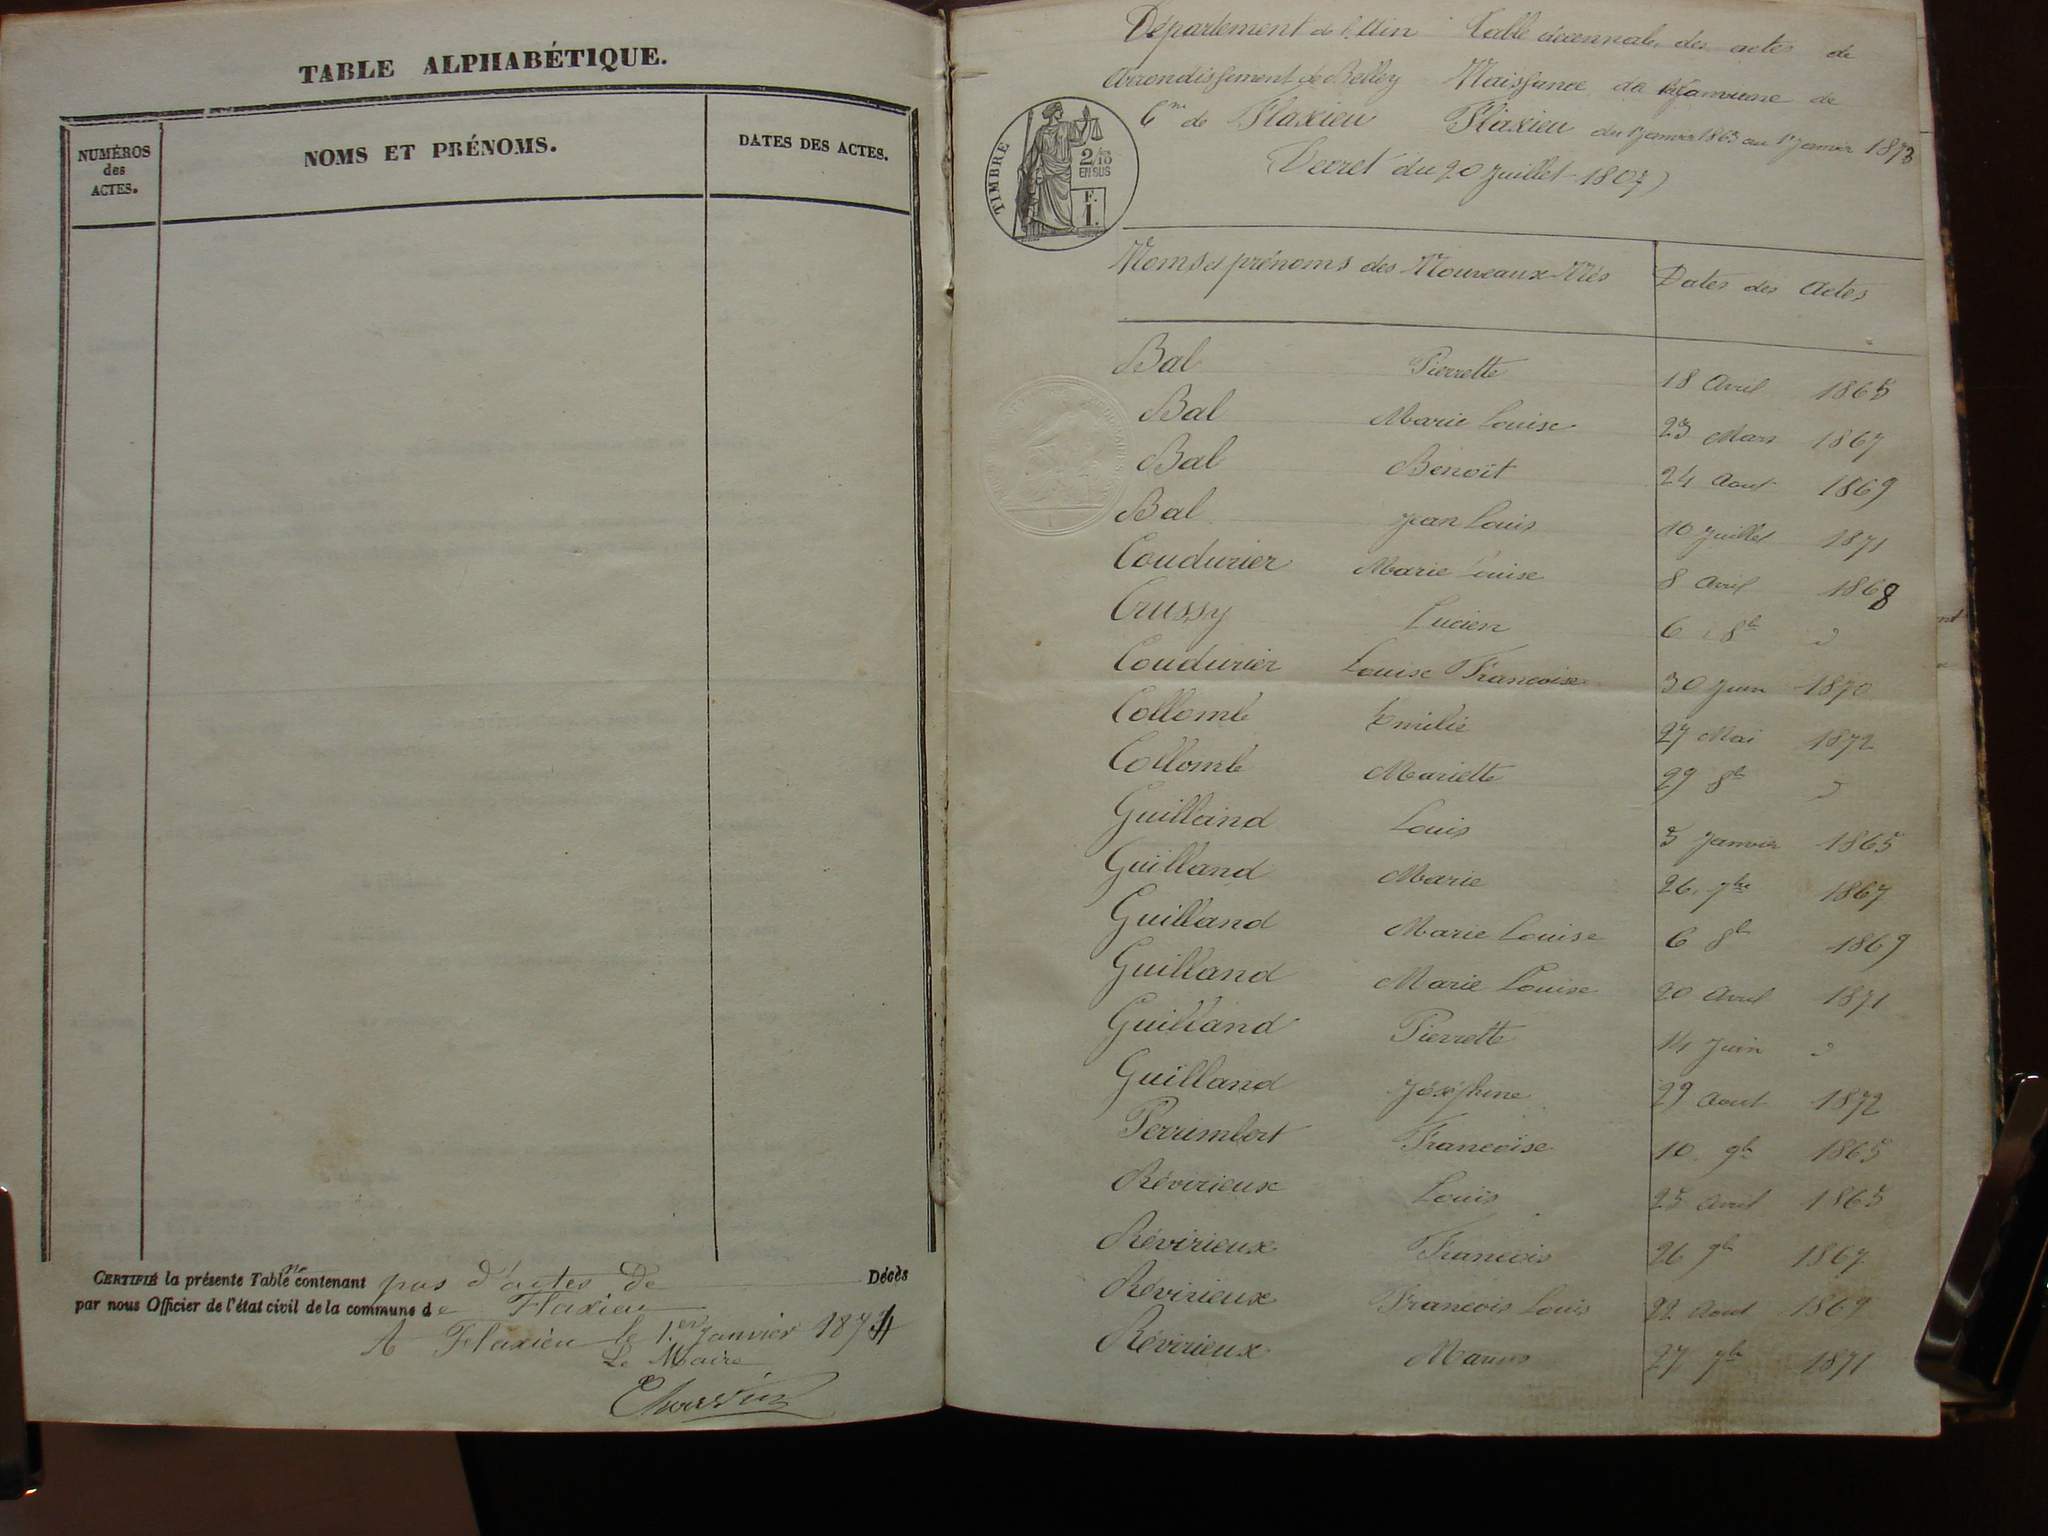 TABLE ALPHABÉTIQUE.
NUMÉROS
des
ACTES.
NOMS ET PRÉNOMS.
DATES DES ACTES.
CERTIFIÉ la présente Table contenant pas d'actes de Décès
par nous Officier de l'état civil de la commune de Flaxieu
A Flaxieu le 1.er Janvier 1874
Le Maire
Département de l'Ain Table décennale des actes de
Arrondissement de Belley Naissance de la Commune de
Cne de Flaxieu Flaxieu du 1er Janvier 1863 au 1er Janvier 1873
(Décret du 20 Juillet 1807)
TIMBRE
2/10
EN SUS
F.
1.
Noms et prénoms des Nouveaux-Nés Dates des Actes
Bal Pierrette 18 Avril 1865
Bal Marie Louise 23 Mars 1867
Bal Benoît 24 Aout 1869
Bal Jean Louis 10 Juillet 1871
Coudurier Marie Louise 8 Avril 1868
Crussy Lucien 6 8b
Coudurier Louise Francoise 30 Juin 1870
Collomb Emilie 27 Mai 1872
Collomb Mariette 29 8b
Guilland Louis 5 Janvier 1865
Guilland Marie 26 7bre 1867
Guilland Marie Louise 6 8b 1869
Guilland Marie Louise 20 Avril 1871
Guilland Pierrette 14 Juin
Guilland Joséphine 29 Aout 1872
Perrimbert Francoise 10 9b 1865
Révirieux Louis 25 Avril 1865
Révirieux Francois 26 7b 1867
Révirieux Francois Louis 22 Aout 1869
Révirieux Marius 27 7b 1871